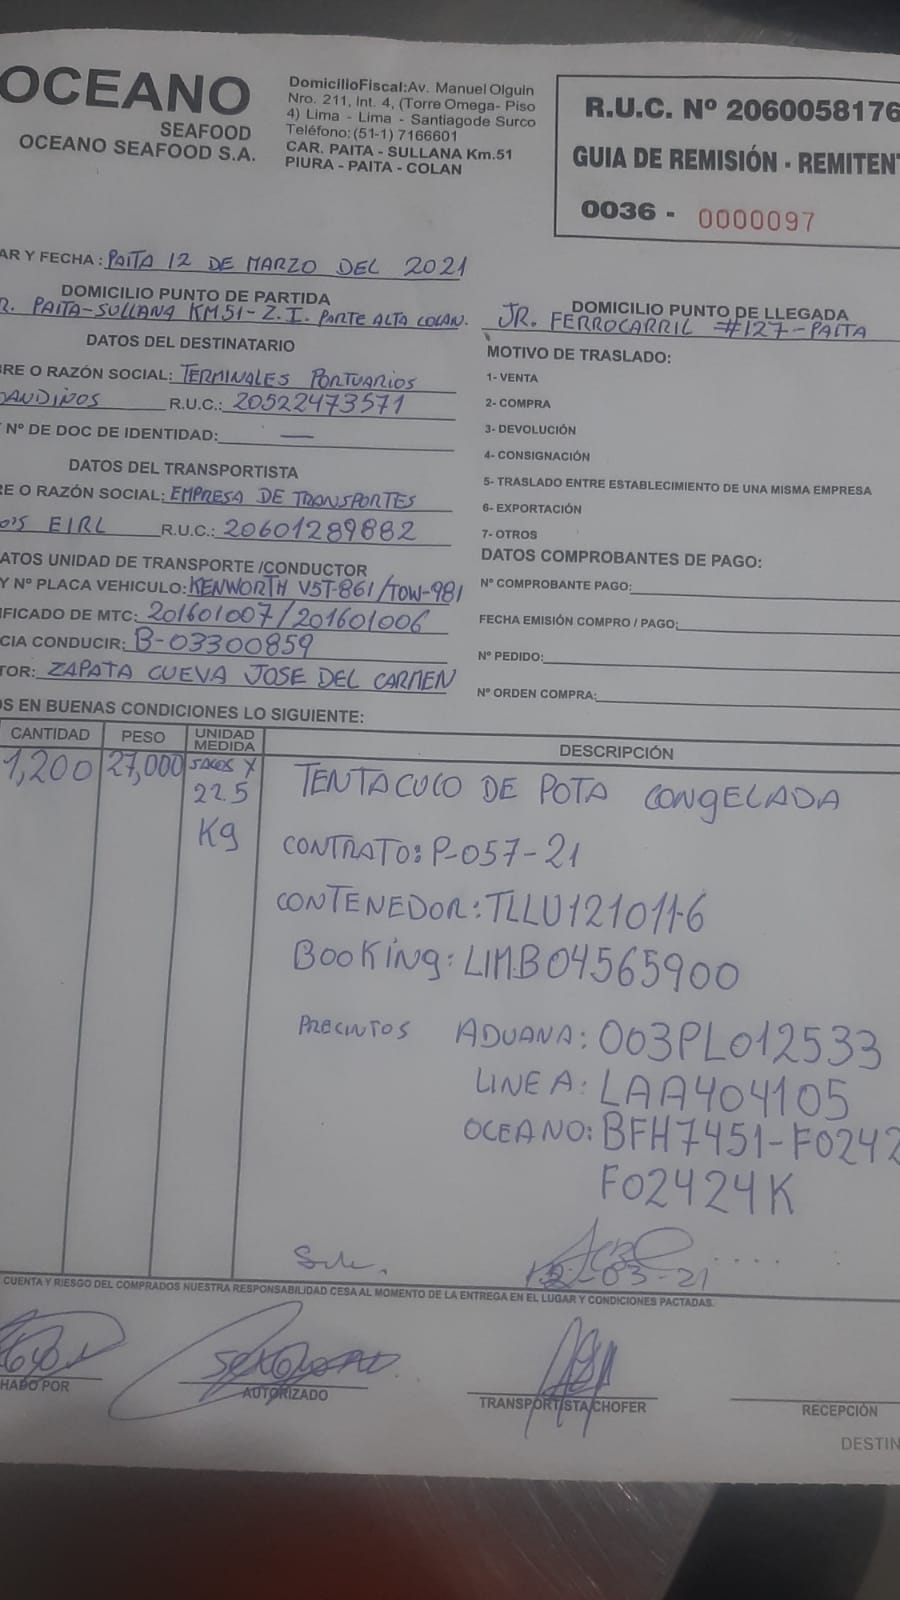 OCEANO
SEAFOOD
OCEANO SEAFOOD S.A.
DomicilioFiscal:Av. Manuel Olguin
Nro. 211, Int. 4, (Torre Omega- Piso
4) Lima - Lima - Santiagode Surco
Teléfono:(51-1) 7166601
CAR. PAITA - SULLANA Km.51
PIURA - PAITA - COLAN
R.U.C. Nº 2060058176
GUIA DE REMISIÓN - REMITENT
0036 - 0000097
AR Y FECHA : PAITA 12 DE MARZO DEL 2021
DOMICILIO PUNTO DE PARTIDA
R. PAITA-SULLANA KM51-Z.I. PARTE ALTA COLAN.
DOMICILIO PUNTO DE LLEGADA
JR. FERROCARRIL #127-PAITA
DATOS DEL DESTINATARIO
BRE O RAZÓN SOCIAL: TERMINALES PORTUARIOS
OANDINOS R.U.C.: 20522473571
Nº DE DOC DE IDENTIDAD: —
DATOS DEL TRANSPORTISTA
RE O RAZÓN SOCIAL: EMPRESA DE TRANSPORTES
EIRL R.U.C.: 20601289882
ATOS UNIDAD DE TRANSPORTE /CONDUCTOR
Y Nº PLACA VEHICULO: KENWORTH V5T-861/TOW-981
IFICADO DE MTC: 201601007/201601006
CIA CONDUCIR: B-03300859
TOR: ZAPATA CUEVA JOSE DEL CARMEN
MOTIVO DE TRASLADO:
1- VENTA
2- COMPRA
3- DEVOLUCIÓN
4- CONSIGNACIÓN
5- TRASLADO ENTRE ESTABLECIMIENTO DE UNA MISMA EMPRESA
6- EXPORTACIÓN
7- OTROS
DATOS COMPROBANTES DE PAGO:
Nº COMPROBANTE PAGO:
FECHA EMISIÓN COMPRO / PAGO:
Nº PEDIDO:
Nº ORDEN COMPRA:
OS EN BUENAS CONDICIONES LO SIGUIENTE:
CANTIDAD PESO UNIDAD MEDIDA DESCRIPCIÓN
1,200 27,000 SACOS X
22.5
Kg
TENTACULO DE POTA CONGELADA
CONTRATO: P-057-21
CONTENEDOR: TLLU121011-6
BOOKING: LIMB04565900
PRECINTOS ADUANA: 003PL012533
LINEA: LAA404105
OCEANO: BFH7451-F0242
F02424K
12-03-21
CUENTA Y RIESGO DEL COMPRADOS NUESTRA RESPONSABILIDAD CESA AL MOMENTO DE LA ENTREGA EN EL LUGAR Y CONDICIONES PACTADAS.
HADO POR
AUTORIZADO
TRANSPORTISTA/CHOFER
RECEPCIÓN
DESTIN